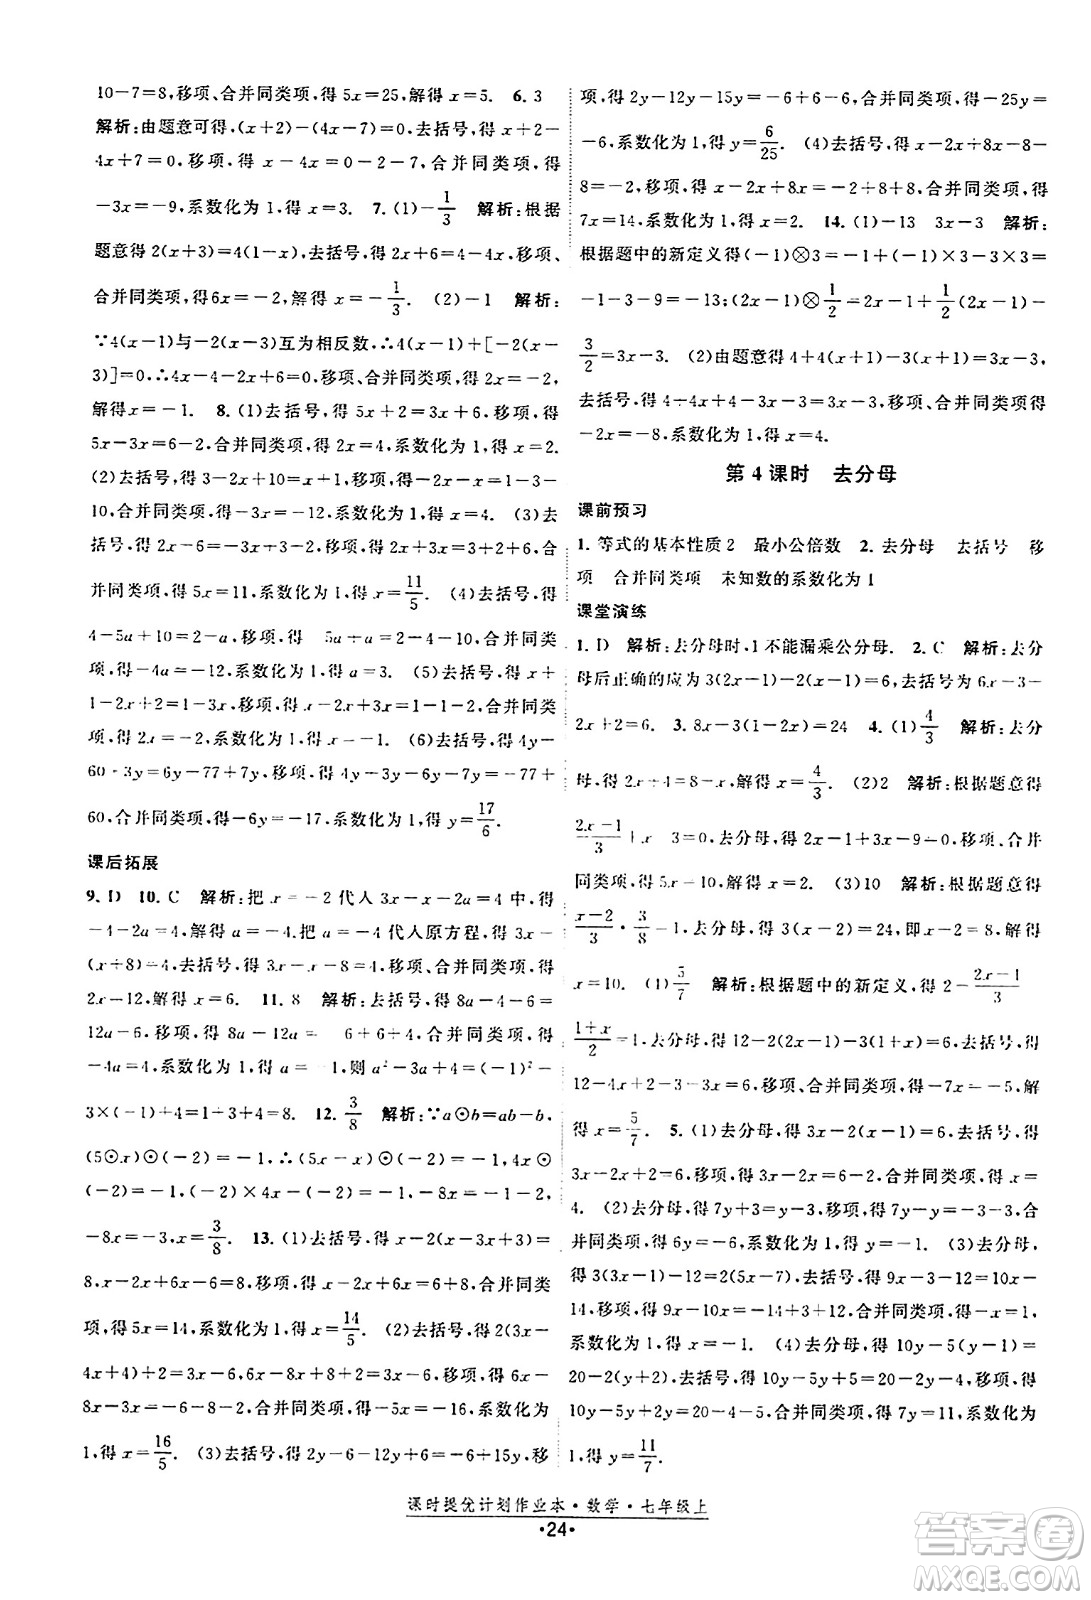 10－7＝8,移项、合并同类项,得 5x＝25,解得 x＝5. 6. 3
解析:由题意可得,(x＋2)－(4x－7)＝0,去括号,得 x＋2－
4x＋7＝0,移项,得 x－4x＝0－2－7,合并同类项,得
－3x＝－9,系数化为 1,得 x＝3. 7. (1)－1/3 解析:根据
题意得 2(x＋3)＝4(1－x),去括号,得 2x＋6＝4－4x,移项、
合并同类项,得6x＝－2,解得 x＝－1/3. (2)－1 解析:
∵4(x－1)与－2(x－3)互为相反数,∴4(x－1)＋[－2(x－
3)]＝0,∴4x－4－2x＋6＝0,移项、合并同类项,得 2x＝－2,
解得x＝－1. 8. (1)去括号,得 5x＋2＝3x＋6,移项,得
5x－3x＝6－2,合并同类项,得 2x＝4,系数化为 1,得 x＝2.
(2)去括号,得 3－2x＋10＝x＋1,移项,得－2x－x＝1－3－
10,合并同类项,得－3x＝－12,系数化为 1,得 x＝4. (3)去
括号,得 2x－6＝－3x＋3＋2,移项,得 2x＋3x＝3＋2＋6,合
并同类项,得 5x＝11,系数化为 1,得 x＝11/5. (4)去括号,得
4－5a＋10＝2－a,移项,得 5a＋a＝2－4－10,合并同类
项,得－4a＝－12,系数化为 1,得 a＝3. (5)去括号,得 x＋
1－2x＋2＝1－3x,移项,得 x－2x＋3x＝1－1－2,合并同类
项,得 2x＝－2,系数化为 1,得 x＝－1. (6)去括号,得 4y－
60－3y＝6y－77＋7y,移项,得 4y－3y－6y－7y＝－77＋
60,合并同类项,得－6y＝－17,系数化为 1,得 y＝17/6.
课后拓展
9. D 10. C 解析:把 x＝－2 代入 3x－x－2a＝4 中,得
－4－2a＝4,解得 a＝－4.把 a＝－4 代入原方程,得 3x－
(x＋8)＝4,去括号,得 3x－x－8＝4,移项、合并同类项,得
2x＝12,解得 x＝6. 11. 8 解析:去括号,得 8a－6＝
12a－6,移项,得 8a－12a＝6＋6＋4,合并同类项,得
－4a＝4,系数化为 1,得 a＝－1,则 a²－3a＋4＝(－1)²－
3×(－1)＋4＝1＋3＋4＝8. 12. 3/8 解析:∵a⊙b＝ab－b,
(5⊙x)⊙(－2)＝－1,∴(5x－x)⊙(－2)＝－1,∴4x⊙
(－2)＝－1,∴4x×(－2)－(－2)＝－1,∴－8x＝－1－2,
－8x＝－3,x＝3/8. 13. (1)去括号,得 x－2x＋6x＋6＝
8,x－2x＋6x＝8－6,移项,得 x－2x＋6x＝8＋6,合并同类
项,得 5x＝14,系数化为 1,得 x＝14/5. (2)去括号,得 2(3x－
4x＋4)＋6＝3x－6,6x－8x＋8＋6＝3x－6,移项,得 6x－
8x－3x＝－6－8－2,合并同类项,得－5x＝－16,系数化为
1,得 x＝16/5. (3)去括号,得 2y－6－12y－6＝6＋15y,移
项,得 2y－12y－15y＝－6＋6－6,合并同类项,得－25y＝
－6,系数化为 1,得 y＝6/25. (4)去括号,得 x＋8x－8－
8＝－2x,移项,得 x－2x＋8x＝－2＋8＋8,合并同类项,得
7x＝14,系数化为 1,得 x＝2. 14. (1)－13 3x－3 解析:
根据题中的新定义得 (－1)⊗3＝(－1)＋(－1)×3－3×3＝
－1－3－9＝－13;(2x－1)⊗1/2＝2x－1＋1/2(2x－1)－
3/2＝3x－3. (2)由题意得 4＋4(x－1)－3(x－1)＝0,去括
号,得 4＋4x＋4－3x－3＝－4x＋3x－3,移项、合并同类项得
－2x＝－8,系数化为 1,得 x＝4.
第 4 课时 去分母
课前预习
1. 等式的基本性质 2 最小公倍数 2. 去分母 去括号 移
项 合并同类项 未知数的系数化为 1
课堂演练
1. D 解析:去分母时,1 不能漏乘公分母. 2. C 解析:去分
母后正确的应为 3(2x－1)－2(x＋1)＝6,去括号为 6x－3－
2x＋2＝6. 3. 8x－3(1－2x)＝24 4. (1)4/3 解析:去分
母,得 2x－4＝4－x,解得 x＝4/3. (2)2 解析:根据题意得
2x－1/3＋x－3＝0,去分母,得 2x－1＋3x－9＝0,移项、合并
同类项,得 5x＝10,解得 x＝2. (3)10 解析:根据题意得
x－2/3·3/8＝1,去分母,得 3(x－2)＝24,即 x－2＝8,解得
x＝10. (1)5/7 解析:根据题中的新定义,得 2－2x－1/3＝
1＋x/2,去分母,得 12－2(2x－1)＝3(1＋x),去括号,得
12－4x＋2＝3＋3x,移项、合并同类项,得－7x＝－5,解
得 x＝5/7. 5. (1)去分母,得 3x－2(x－1)＝6,去括号,得
3x－2x＋2＝6,移项,得 3x－2x＝6－2,合并同类项,得 x＝
4. (2)去分母,得 7y＋3＝y－3,移项,得 7y－y＝－3－3,合
并同类项,得 6y＝－6,系数化为 1,得 y＝－1. (3)去分母,
得 3(3x－1)－12＝2(5x－7),去括号,得 9x－3－12＝10x－
14,移项,得 9x－10x＝－14＋12＋3,合并同类项,得－x＝1,
系数化为 1,得 x＝－1. (4)去分母,得 10y－5(y－1)＝
20－2(y＋2),去括号,得 10y－5y＋5＝20－2y－4,移项,得
10y－5y＋2y＝20－4－5,合并同类项,得 7y＝11,系数化为
1,得 y＝11/7.
课时提优计划作业本·数学·七年级上
·24·
答案圈
MXQE.COM